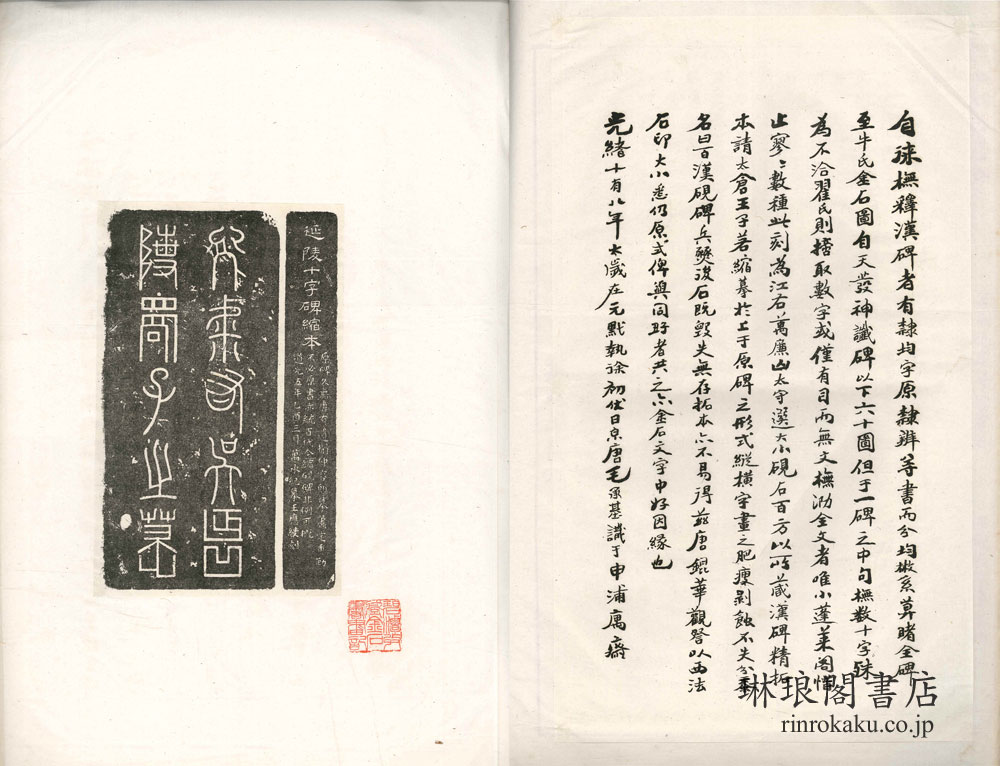 自來橅釋漢碑者有隸均字原隸辨等書而分均㪚系莫睹全碑
至牛氏金石圖自天發神讖碑以下六十圖但于一碑之中句橅数十字殊
為不洽翟氏則摘取數字或僅有目而無文橅泐全文者唯小蓬萊閣惜
止寥〻數種此刻為江右萬廉山太守選大小硯石百方以所藏漢碑精拓
本請太倉王子若縮摹於上于原碑之形式縱横字畫之肥瘦剥蝕不失分毫
名曰百漢硯碑兵燹後石既毁失無存拓本亦不易得兹唐鋥華觀詧以西法
石印大小悉仍原式俾與同好者共之亦金石文字中好因緣也
光緒十有八年太歲在元黓執徐初伏日泉唐毛承基識于申浦寓齋
延陵十字碑縮本
道光五年七月三日萬承紀摹王應綬刻
於虖有吳延
陵君子之墓
林琅閣書店
rinrokaku.co.jp